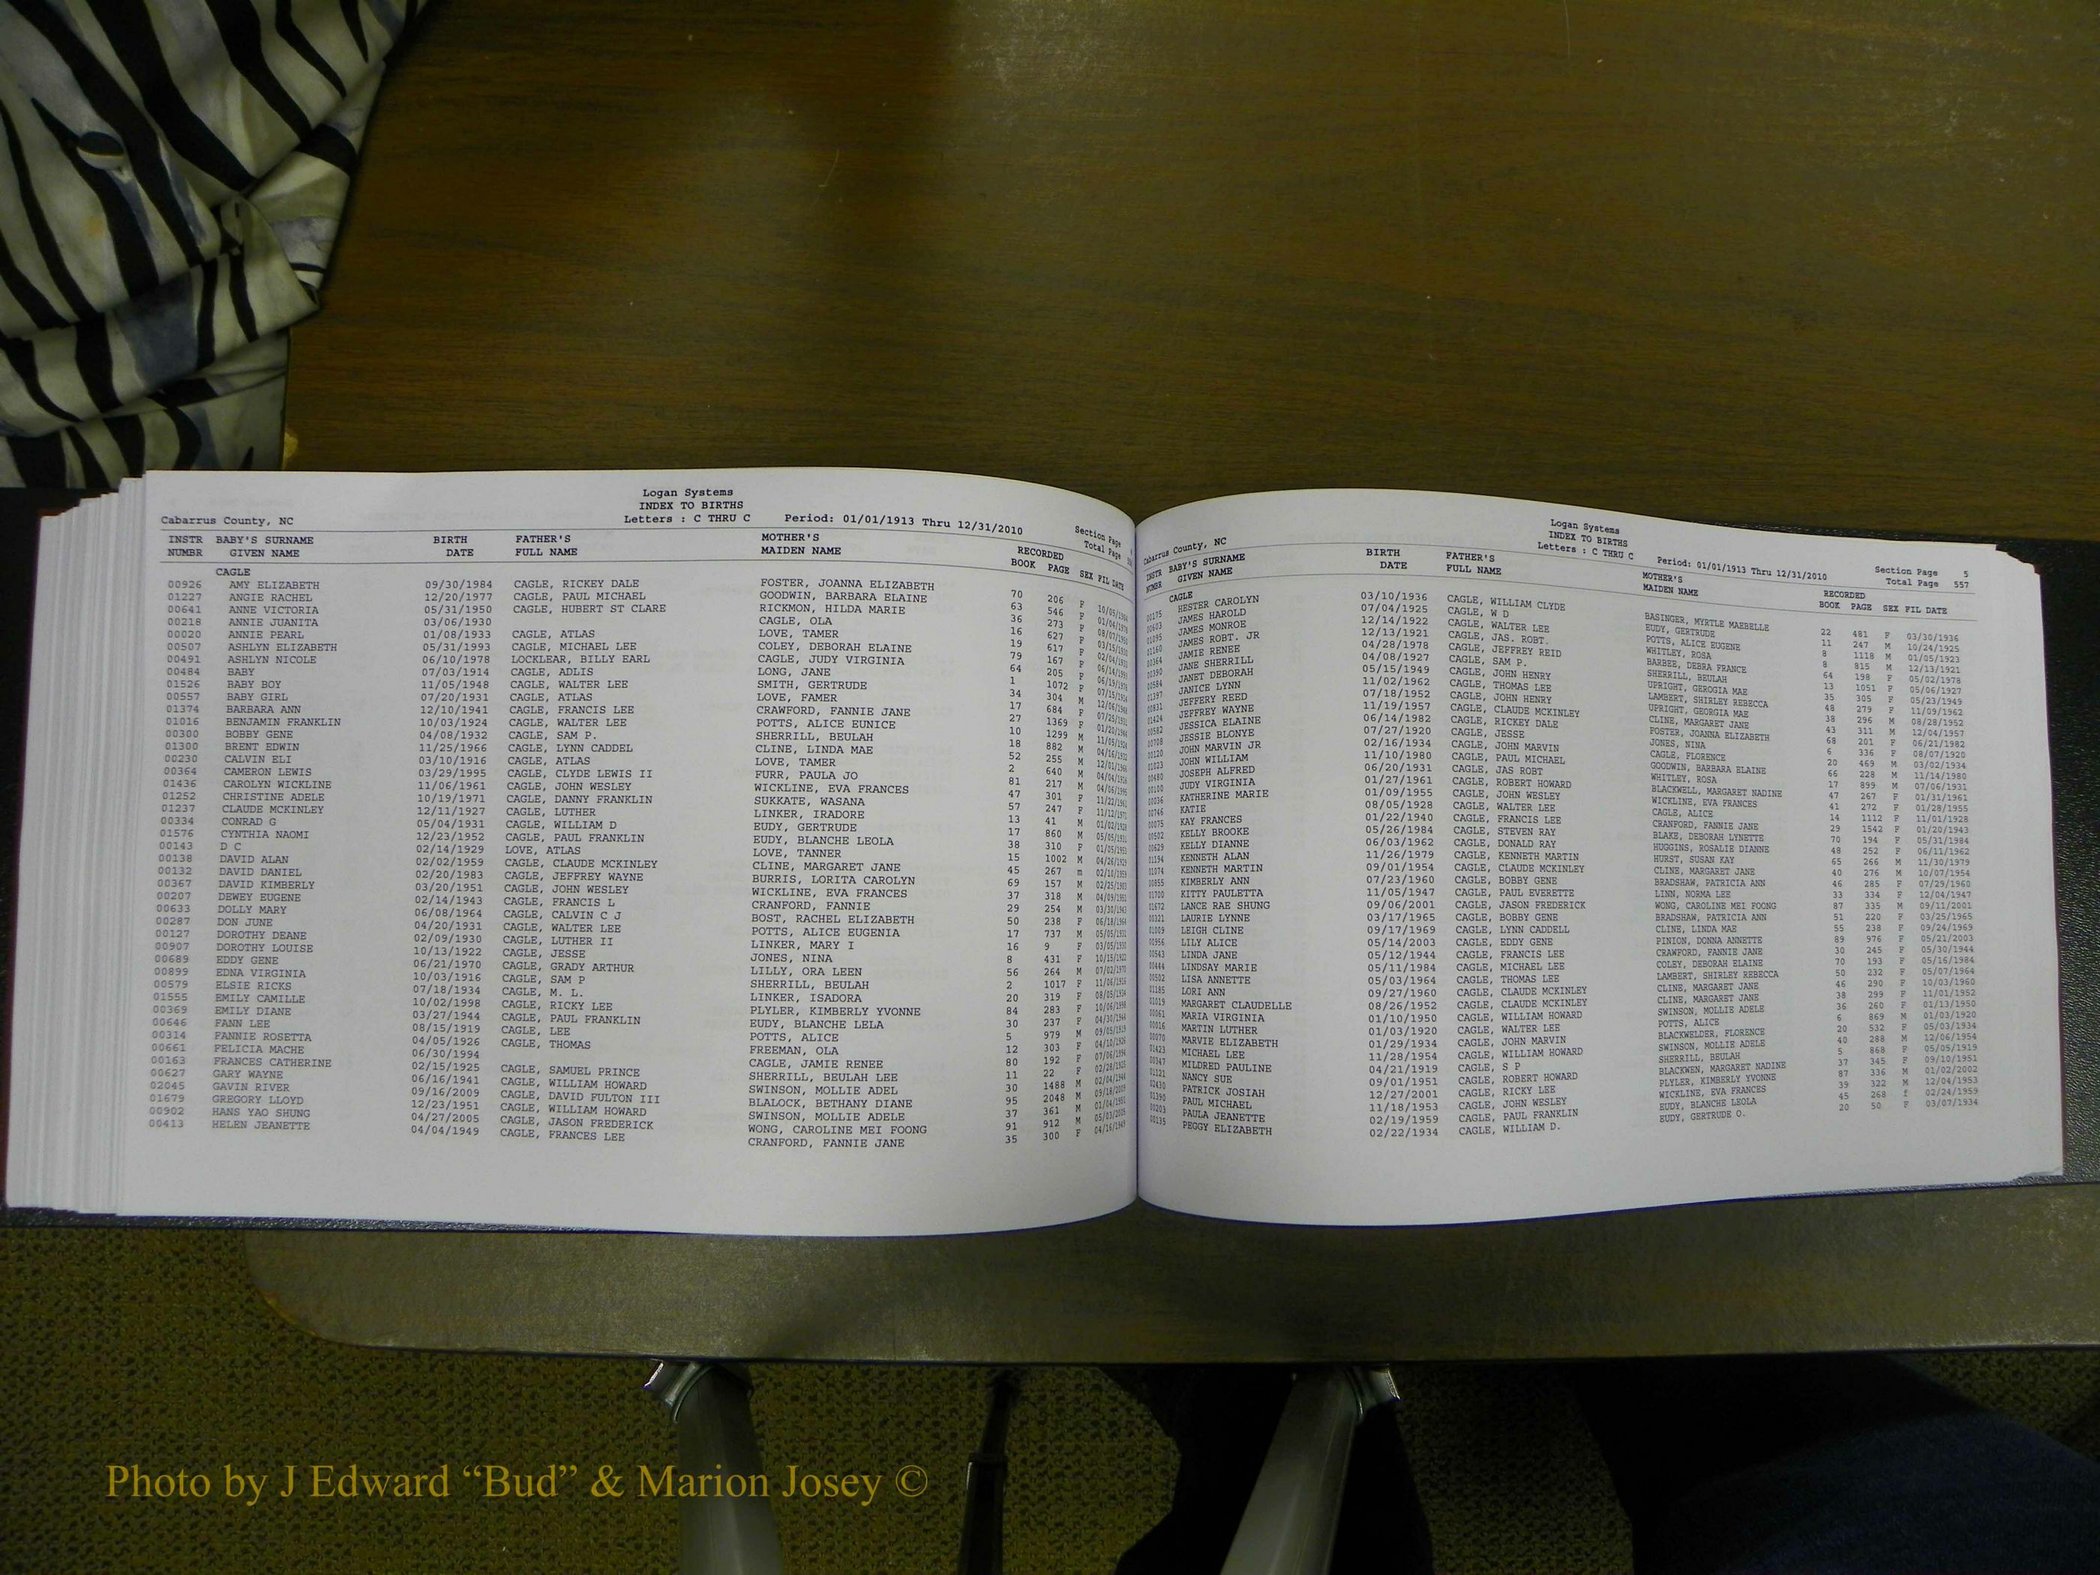 Cabarrus County, NC
Logan Systems
INDEX TO BIRTHS
Letters : C THRU C Period: 01/01/1913 Thru 12/31/2010
Section Page
Total Page
INSTR BABY'S SURNAME BIRTH FATHER'S MOTHER'S RECORDED
NUMBR GIVEN NAME DATE FULL NAME MAIDEN NAME BOOK PAGE SEX FIL DATE
CAGLE
00926 AMY ELIZABETH 09/30/1984 CAGLE, RICKEY DALE FOSTER, JOANNA ELIZABETH 70 206 F 10/05/1984
01227 ANGIE RACHEL 12/20/1977 CAGLE, PAUL MICHAEL GOODWIN, BARBARA ELAINE 63 546 F 01/04/1978
00641 ANNE VICTORIA 05/31/1950 CAGLE, HUBERT ST CLARE RICKMON, HILDA MARIE 36 273 F
00218 ANNIE JUANITA 03/06/1930 CAGLE, OLA 16 627 F
00020 ANNIE PEARL 01/08/1933 CAGLE, ATLAS LOVE, TAMER 19 617 F
00507 ASHLYN ELIZABETH 05/31/1993 CAGLE, MICHAEL LEE COLEY, DEBORAH ELAINE 79 167 F
00491 ASHLYN NICOLE 06/10/1978 LOCKLEAR, BILLY EARL CAGLE, JUDY VIRGINIA 64 205 F
00484 BABY 07/03/1914 CAGLE, ADLIS LONG, JANE 1 1072 F
01526 BABY BOY 11/05/1948 CAGLE, WALTER LEE SMITH, GERTRUDE 34 304 M
00557 BABY GIRL 07/20/1931 CAGLE, ATLAS LOVE, FAMER 17 684 F
01374 BARBARA ANN 12/10/1941 CAGLE, FRANCIS LEE CRAWFORD, FANNIE JANE 27 1369 F
01016 BENJAMIN FRANKLIN 10/03/1924 CAGLE, WALTER LEE POTTS, ALICE EUNICE 10 1299 M
00300 BOBBY GENE 04/08/1932 CAGLE, SAM P. SHERRILL, BEULAH 18 882 M
01300 BRENT EDWIN 11/25/1966 CAGLE, LYNN CADDEL CLINE, LINDA MAE 52 255 M
00230 CALVIN ELI 03/10/1916 CAGLE, ATLAS LOVE, TAMER 2 640 M
00364 CAMERON LEWIS 03/29/1995 CAGLE, CLYDE LEWIS II FURR, PAULA JO 81 217 M
01436 CAROLYN WICKLINE 11/06/1961 CAGLE, JOHN WESLEY WICKLINE, EVA FRANCES 47 301 F
01252 CHRISTINE ADELE 10/19/1971 CAGLE, DANNY FRANKLIN SUKKATE, WASANA 57 247 F
01237 CLAUDE MCKINLEY 12/11/1927 CAGLE, LUTHER LINKER, IRADORE 13 41 M
00334 CONRAD G 05/04/1931 CAGLE, WILLIAM D EUDY, GERTRUDE 17 860 M
01576 CYNTHIA NAOMI 12/23/1952 CAGLE, PAUL FRANKLIN EUDY, BLANCHE LEOLA 38 310 F
00143 D C 02/14/1929 LOVE, ATLAS LOVE, TANNER 15 1002 M
00138 DAVID ALAN 02/02/1959 CAGLE, CLAUDE MCKINLEY CLINE, MARGARET JANE 45 267 m
00132 DAVID DANIEL 02/20/1983 CAGLE, JEFFREY WAYNE BURRIS, LORITA CAROLYN 69 157 M
00367 DAVID KIMBERLY 03/20/1951 CAGLE, JOHN WESLEY WICKLINE, EVA FRANCES 37 318 M
00207 DEWEY EUGENE 02/14/1943 CAGLE, FRANCIS L CRANFORD, FANNIE 29 254 M
00633 DOLLY MARY 06/08/1964 CAGLE, CALVIN C J BOST, RACHEL ELIZABETH 50 238 F
00287 DON JUNE 04/20/1931 CAGLE, WALTER LEE POTTS, ALICE EUGENIA 17 737 M
00127 DOROTHY DEANE 02/09/1930 CAGLE, LUTHER II LINKER, MARY I 16 9 F
00907 DOROTHY LOUISE 10/13/1922 CAGLE, JESSE JONES, NINA 8 431 F
00689 EDDY GENE 06/21/1970 CAGLE, GRADY ARTHUR LILLY, ORA LEEN 56 264 M
00899 EDNA VIRGINIA 10/03/1916 CAGLE, SAM P SHERRILL, BEULAH 2 1017 F
00579 ELSIE RICKS 07/18/1934 CAGLE, M. L. LINKER, ISADORA 20 319 F
01555 EMILY CAMILLE 10/02/1998 CAGLE, RICKY LEE PLYLER, KIMBERLY YVONNE 84 283 F
00369 EMILY DIANE 03/27/1944 CAGLE, PAUL FRANKLIN EUDY, BLANCHE LELA 30 237 F
00646 FANN LEE 08/15/1919 CAGLE, LEE POTTS, ALICE 5 979 M
00314 FANNIE ROSETTA 04/05/1926 CAGLE, THOMAS FREEMAN, OLA 12 303 F
00661 FELICIA MACHE 06/30/1994 CAGLE, JAMIE RENEE 80 192 F
00163 FRANCES CATHERINE 02/15/1925 CAGLE, SAMUEL PRINCE SHERRILL, BEULAH LEE 11 22 F
00627 GARY WAYNE 06/16/1941 CAGLE, WILLIAM HOWARD SWINSON, MOLLIE ADEL 30 1488 M
02045 GAVIN RIVER 09/16/2009 CAGLE, DAVID FULTON III BLALOCK, BETHANY DIANE 95 2048 M
01679 GREGORY LLOYD 12/23/1951 CAGLE, WILLIAM HOWARD SWINSON, MOLLIE ADELE 37 361 M
00902 HANS YAO SHUNG 04/27/2005 CAGLE, JASON FREDERICK WONG, CAROLINE MEI FOONG 91 912 M
00413 HELEN JEANETTE 04/04/1949 CAGLE, FRANCES LEE CRANFORD, FANNIE JANE 35 300 F 04/16/1949
Cabarrus County, NC
Logan Systems
INDEX TO BIRTHS
Letters : C THRU C Period: 01/01/1913 Thru 12/31/2010
Section Page 5
Total Page 557
INSTR BABY'S SURNAME BIRTH FATHER'S MOTHER'S RECORDED
NUMBR GIVEN NAME DATE FULL NAME MAIDEN NAME BOOK PAGE SEX FIL DATE
CAGLE
00175 HESTER CAROLYN 03/10/1936 CAGLE, WILLIAM CLYDE BASINGER, MYRTLE MAEBELLE 22 481 F 03/30/1936
00603 JAMES HAROLD 07/04/1925 CAGLE, W D EUDY, GERTRUDE 11 247 M 10/24/1925
01095 JAMES MONROE 12/14/1922 CAGLE, WALTER LEE POTTS, ALICE EUGENE 8 1118 M 01/05/1923
01160 JAMES ROBT. JR 12/13/1921 CAGLE, JAS. ROBT. WHITLEY, ROSA 8 815 M 12/13/1921
00364 JAMIE RENEE 04/28/1978 CAGLE, JEFFREY REID BARBEE, DEBRA FRANCE 64 198 F 05/02/1978
00390 JANE SHERRILL 04/08/1927 CAGLE, SAM P. SHERRILL, BEULAH 13 1051 F 05/06/1927
00584 JANET DEBORAH 05/15/1949 CAGLE, JOHN HENRY UPRIGHT, GEROGIA MAE 35 305 F 05/23/1949
01397 JANICE LYNN 11/02/1962 CAGLE, THOMAS LEE LAMBERT, SHIRLEY REBECCA 48 279 F 11/09/1962
00831 JEFFERY REED 07/18/1952 CAGLE, JOHN HENRY UPRIGHT, GEORGIA MAE 38 296 M 08/28/1952
01424 JEFFREY WAYNE 11/19/1957 CAGLE, CLAUDE MCKINLEY CLINE, MARGARET JANE 43 311 M 12/04/1957
00582 JESSICA ELAINE 06/14/1982 CAGLE, RICKEY DALE FOSTER, JOANNA ELIZABETH 68 201 F 06/21/1982
00708 JESSIE BLONYE 07/27/1920 CAGLE, JESSE JONES, NINA 6 336 F 08/07/1920
00120 JOHN MARVIN JR 02/16/1934 CAGLE, JOHN MARVIN CAGLE, FLORENCE 20 469 M 03/02/1934
01023 JOHN WILLIAM 11/10/1980 CAGLE, PAUL MICHAEL GOODWIN, BARBARA ELAINE 66 228 M 11/14/1980
00480 JOSEPH ALFRED 06/20/1931 CAGLE, JAS ROBT WHITLEY, ROSA 17 899 M 07/06/1931
00100 JUDY VIRGINIA 01/27/1961 CAGLE, ROBERT HOWARD BLACKWELL, MARGARET NADINE 47 267 F 01/31/1961
00036 KATHERINE MARIE 01/09/1955 CAGLE, JOHN WESLEY WICKLINE, EVA FRANCES 41 272 F 01/28/1955
00746 KATIE 08/05/1928 CAGLE, WALTER LEE CAGLE, ALICE 14 1112 F 11/01/1928
00075 KAY FRANCES 01/22/1940 CAGLE, FRANCIS LEE CRANFORD, FANNIE JANE 29 1542 F 01/20/1943
00502 KELLY BROOKE 05/26/1984 CAGLE, STEVEN RAY BLAKE, DEBORAH LYNETTE 70 194 F 05/31/1984
00629 KELLY DIANNE 06/03/1962 CAGLE, DONALD RAY HUGGINS, ROSALIE DIANNE 48 252 F 06/11/1962
01194 KENNETH ALAN 11/26/1979 CAGLE, KENNETH MARTIN HURST, SUSAN KAY 65 266 M 11/30/1979
01074 KENNETH MARTIN 09/01/1954 CAGLE, CLAUDE MCKINLEY CLINE, MARGARET JANE 40 276 M 10/07/1954
00855 KIMBERLY ANN 07/23/1960 CAGLE, BOBBY GENE BRADSHAW, PATRICIA ANN 46 285 F 07/29/1960
01700 KITTY PAULETTA 11/05/1947 CAGLE, PAUL EVERETTE LINN, NORMA LEE 33 334 F 12/04/1947
01672 LANCE RAE SHUNG 09/06/2001 CAGLE, JASON FREDERICK WONG, CAROLINE MEI FOONG 87 335 M 09/11/2001
00321 LAURIE LYNNE 03/17/1965 CAGLE, BOBBY GENE BRADSHAW, PATRICIA ANN 51 220 F 03/25/1965
01009 LEIGH CLINE 09/17/1969 CAGLE, LYNN CADDELL CLINE, LINDA MAE 55 238 F 09/24/1969
00956 LILY ALICE 05/14/2003 CAGLE, EDDY GENE PINION, DONNA ANNETTE 89 976 F 05/21/2003
00543 LINDA JANE 05/12/1944 CAGLE, FRANCIS LEE CRAWFORD, FANNIE JANE 30 245 F 05/30/1944
00444 LINDSAY MARIE 05/11/1984 CAGLE, MICHAEL LEE COLEY, DEBORAH ELAINE 70 193 F 05/16/1984
00502 LISA ANNETTE 05/03/1964 CAGLE, THOMAS LEE LAMBERT, SHIRLEY REBECCA 50 232 F 05/07/1964
01185 LORI ANN 09/27/1960 CAGLE, CLAUDE MCKINLEY CLINE, MARGARET JANE 46 290 F 10/03/1960
01019 MARGARET CLAUDELLE 08/26/1952 CAGLE, CLAUDE MCKINLEY CLINE, MARGARET JANE 38 299 F 11/01/1952
00061 MARIA VIRGINIA 01/10/1950 CAGLE, WILLIAM HOWARD SWINSON, MOLLIE ADELE 36 260 F 01/13/1950
00016 MARTIN LUTHER 01/03/1920 CAGLE, WALTER LEE POTTS, ALICE 6 869 M 01/03/1920
00070 MARVIE ELIZABETH 01/29/1934 CAGLE, JOHN MARVIN BLACKWELDER, FLORENCE 20 532 F 05/03/1934
01423 MICHAEL LEE 11/28/1954 CAGLE, WILLIAM HOWARD SWINSON, MOLLIE ADELE 40 288 M 12/06/1954
MILDRED PAULINE 04/21/1919 CAGLE, S P SHERRILL, BEULAH 5 868 F 05/05/1919
01121 NANCY SUE 09/01/1951 CAGLE, ROBERT HOWARD BLACKWEN, MARGARET NADINE 37 345 F 09/10/1951
02430 PATRICK JOSIAH 12/27/2001 CAGLE, RICKY LEE PLYLER, KIMBERLY YVONNE 87 336 M 01/02/2002
01390 PAUL MICHAEL 11/18/1953 CAGLE, JOHN WESLEY WICKLINE, EVA FRANCES 39 322 M 12/04/1953
00203 PAULA JEANETTE 02/19/1959 CAGLE, PAUL FRANKLIN EUDY, BLANCHE LEOLA 45 268 f 02/24/1959
00135 PEGGY ELIZABETH 02/22/1934 CAGLE, WILLIAM D. EUDY, GERTRUDE O. 20 50 F 03/07/1934
Photo by J Edward “Bud” & Marion Josey ©